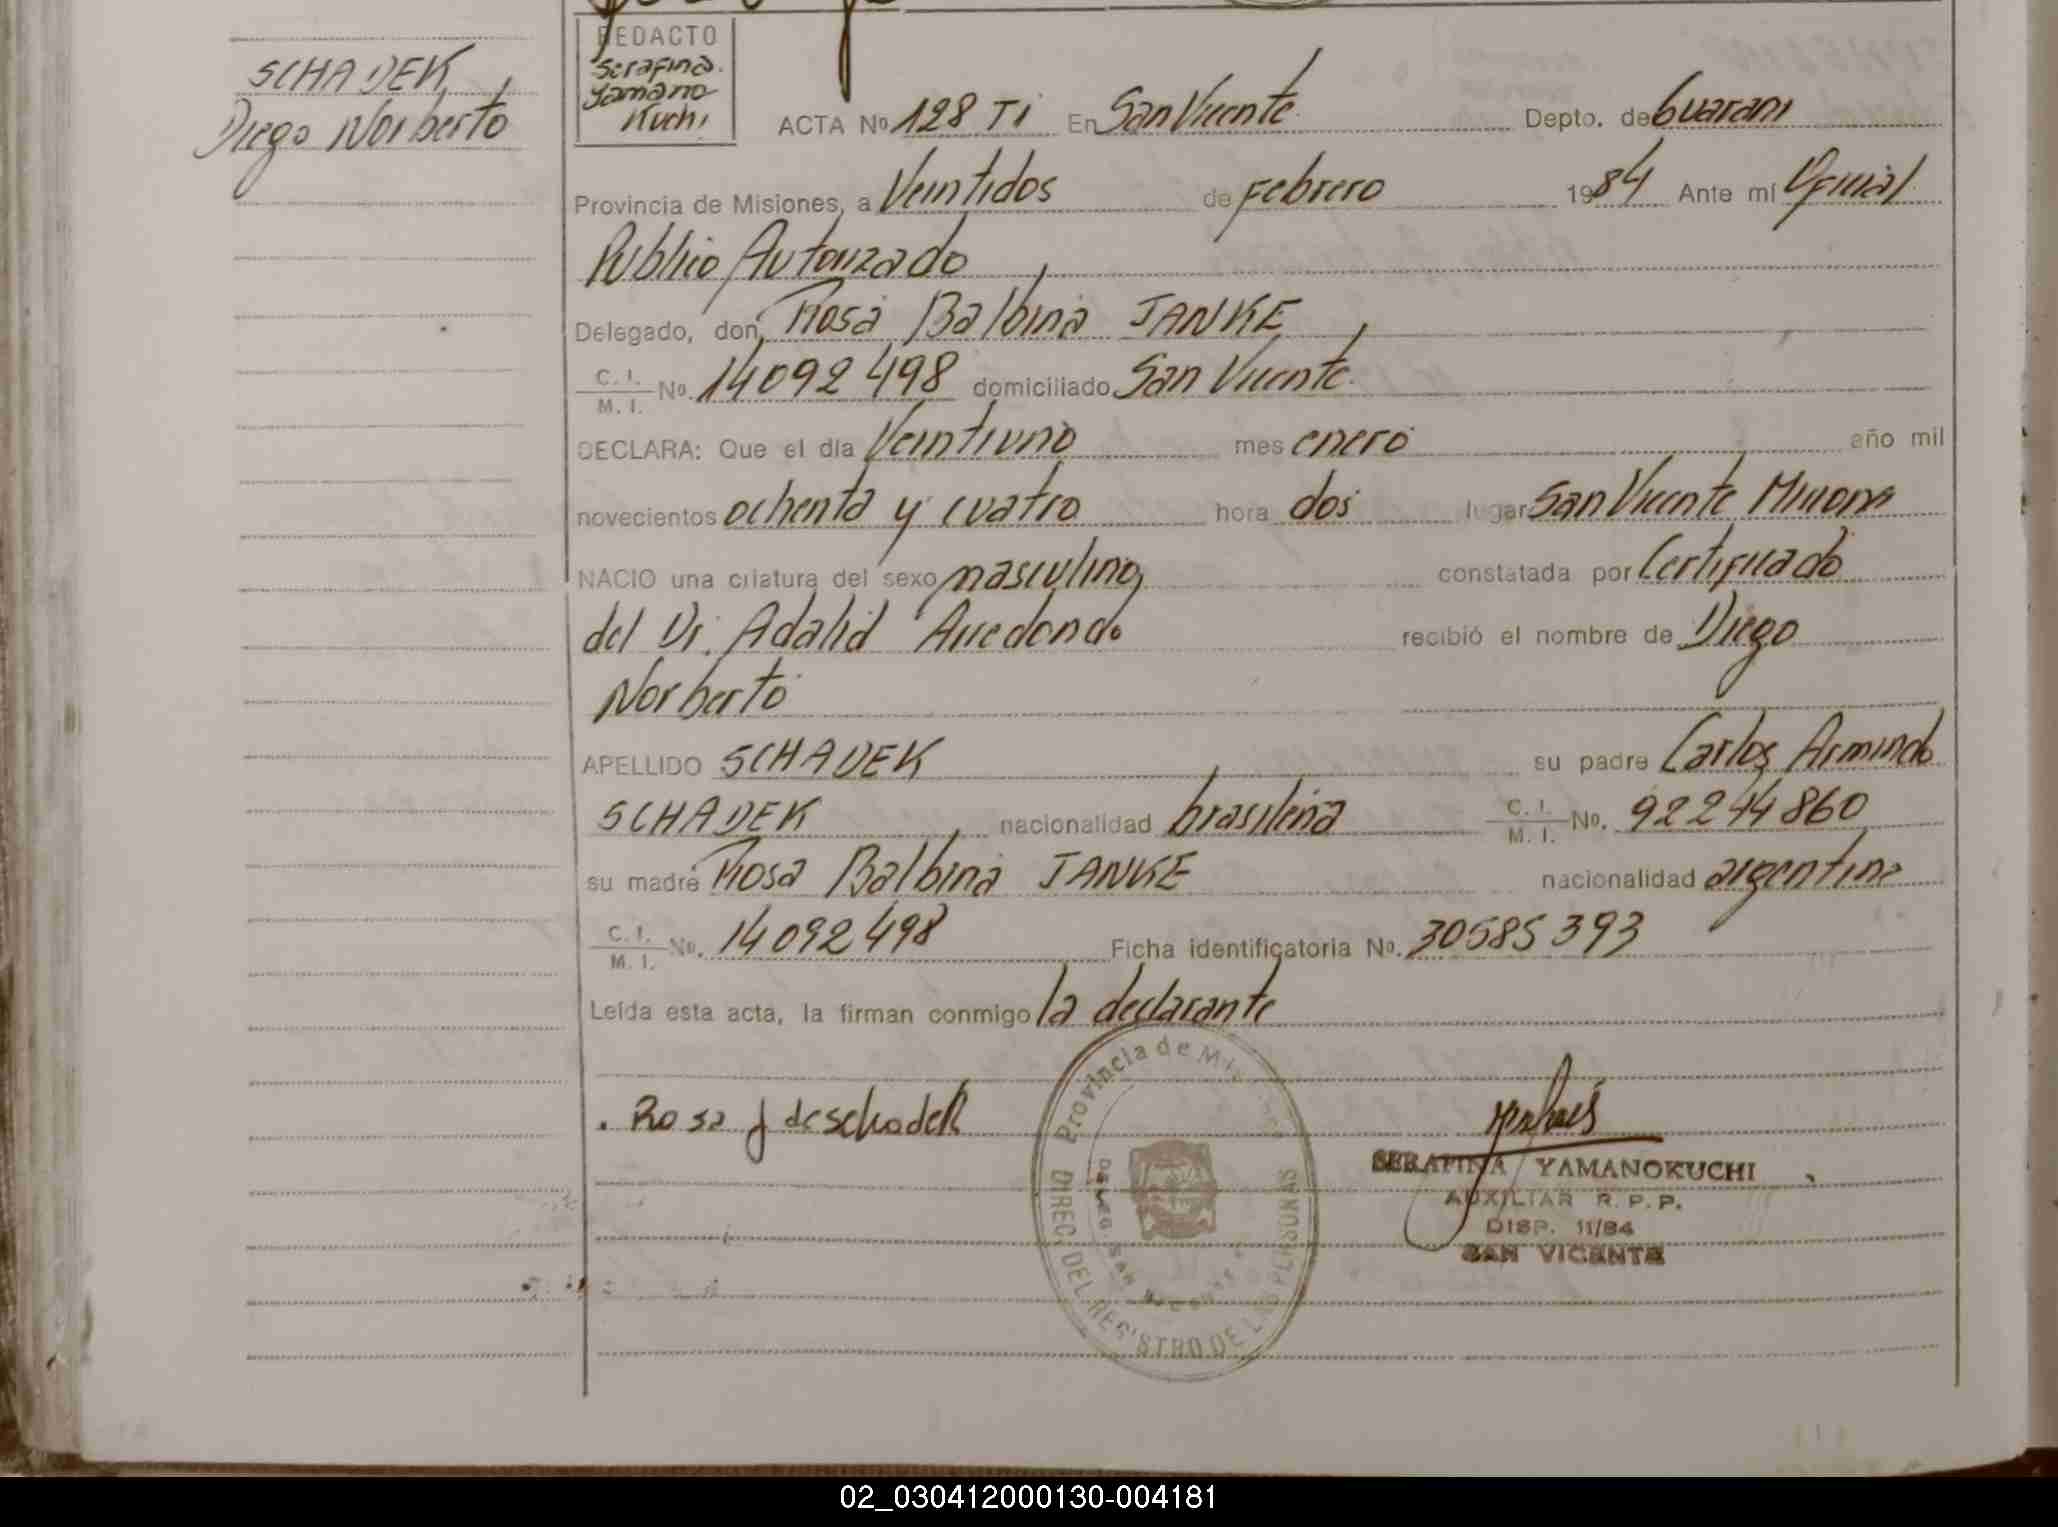 SCHADEK
Diego Norberto
REDACTO
Serafina
Yamano
Kuchi
ACTA Nº 128 TI En San Vicente Depto. de Guarani
Provincia de Misiones, a Veintidos de Febrero 1984 Ante mí Oficial
Publico Autorizado
Delegado, don Rosa Balbina JANKE
C. I. / M. I. Nº. 14092498 domiciliado San Vicente
DECLARA: Que el día Veintiuno mes enero año mil
novecientos ochenta y cuatro hora dos lugar San Vicente Misiones
NACIO una criatura del sexo masculino, constatada por Certificado
del Dr. Adalid Arredondo recibió el nombre de Diego
Norberto
APELLIDO SCHADEK su padre Carlos Armindo
SCHADEK nacionalidad brasileña C. I. / M. I. Nº. 92244860
su madre Rosa Balbina JANKE nacionalidad argentina
C. I. / M. I. Nº. 14092498 Ficha identificatoria Nº. 30585393
Leída esta acta, la firman conmigo la declarante
Rosa J de schadek
Provincia de Misiones
DIREC. DEL REGISTRO DE LAS PERSONAS
DELEG. SAN VICENTE
SERAFINA YAMANOKUCHI
AUXILIAR R. P. P.
DISP. 11/84
SAN VICENTE
02_030412000130-004181